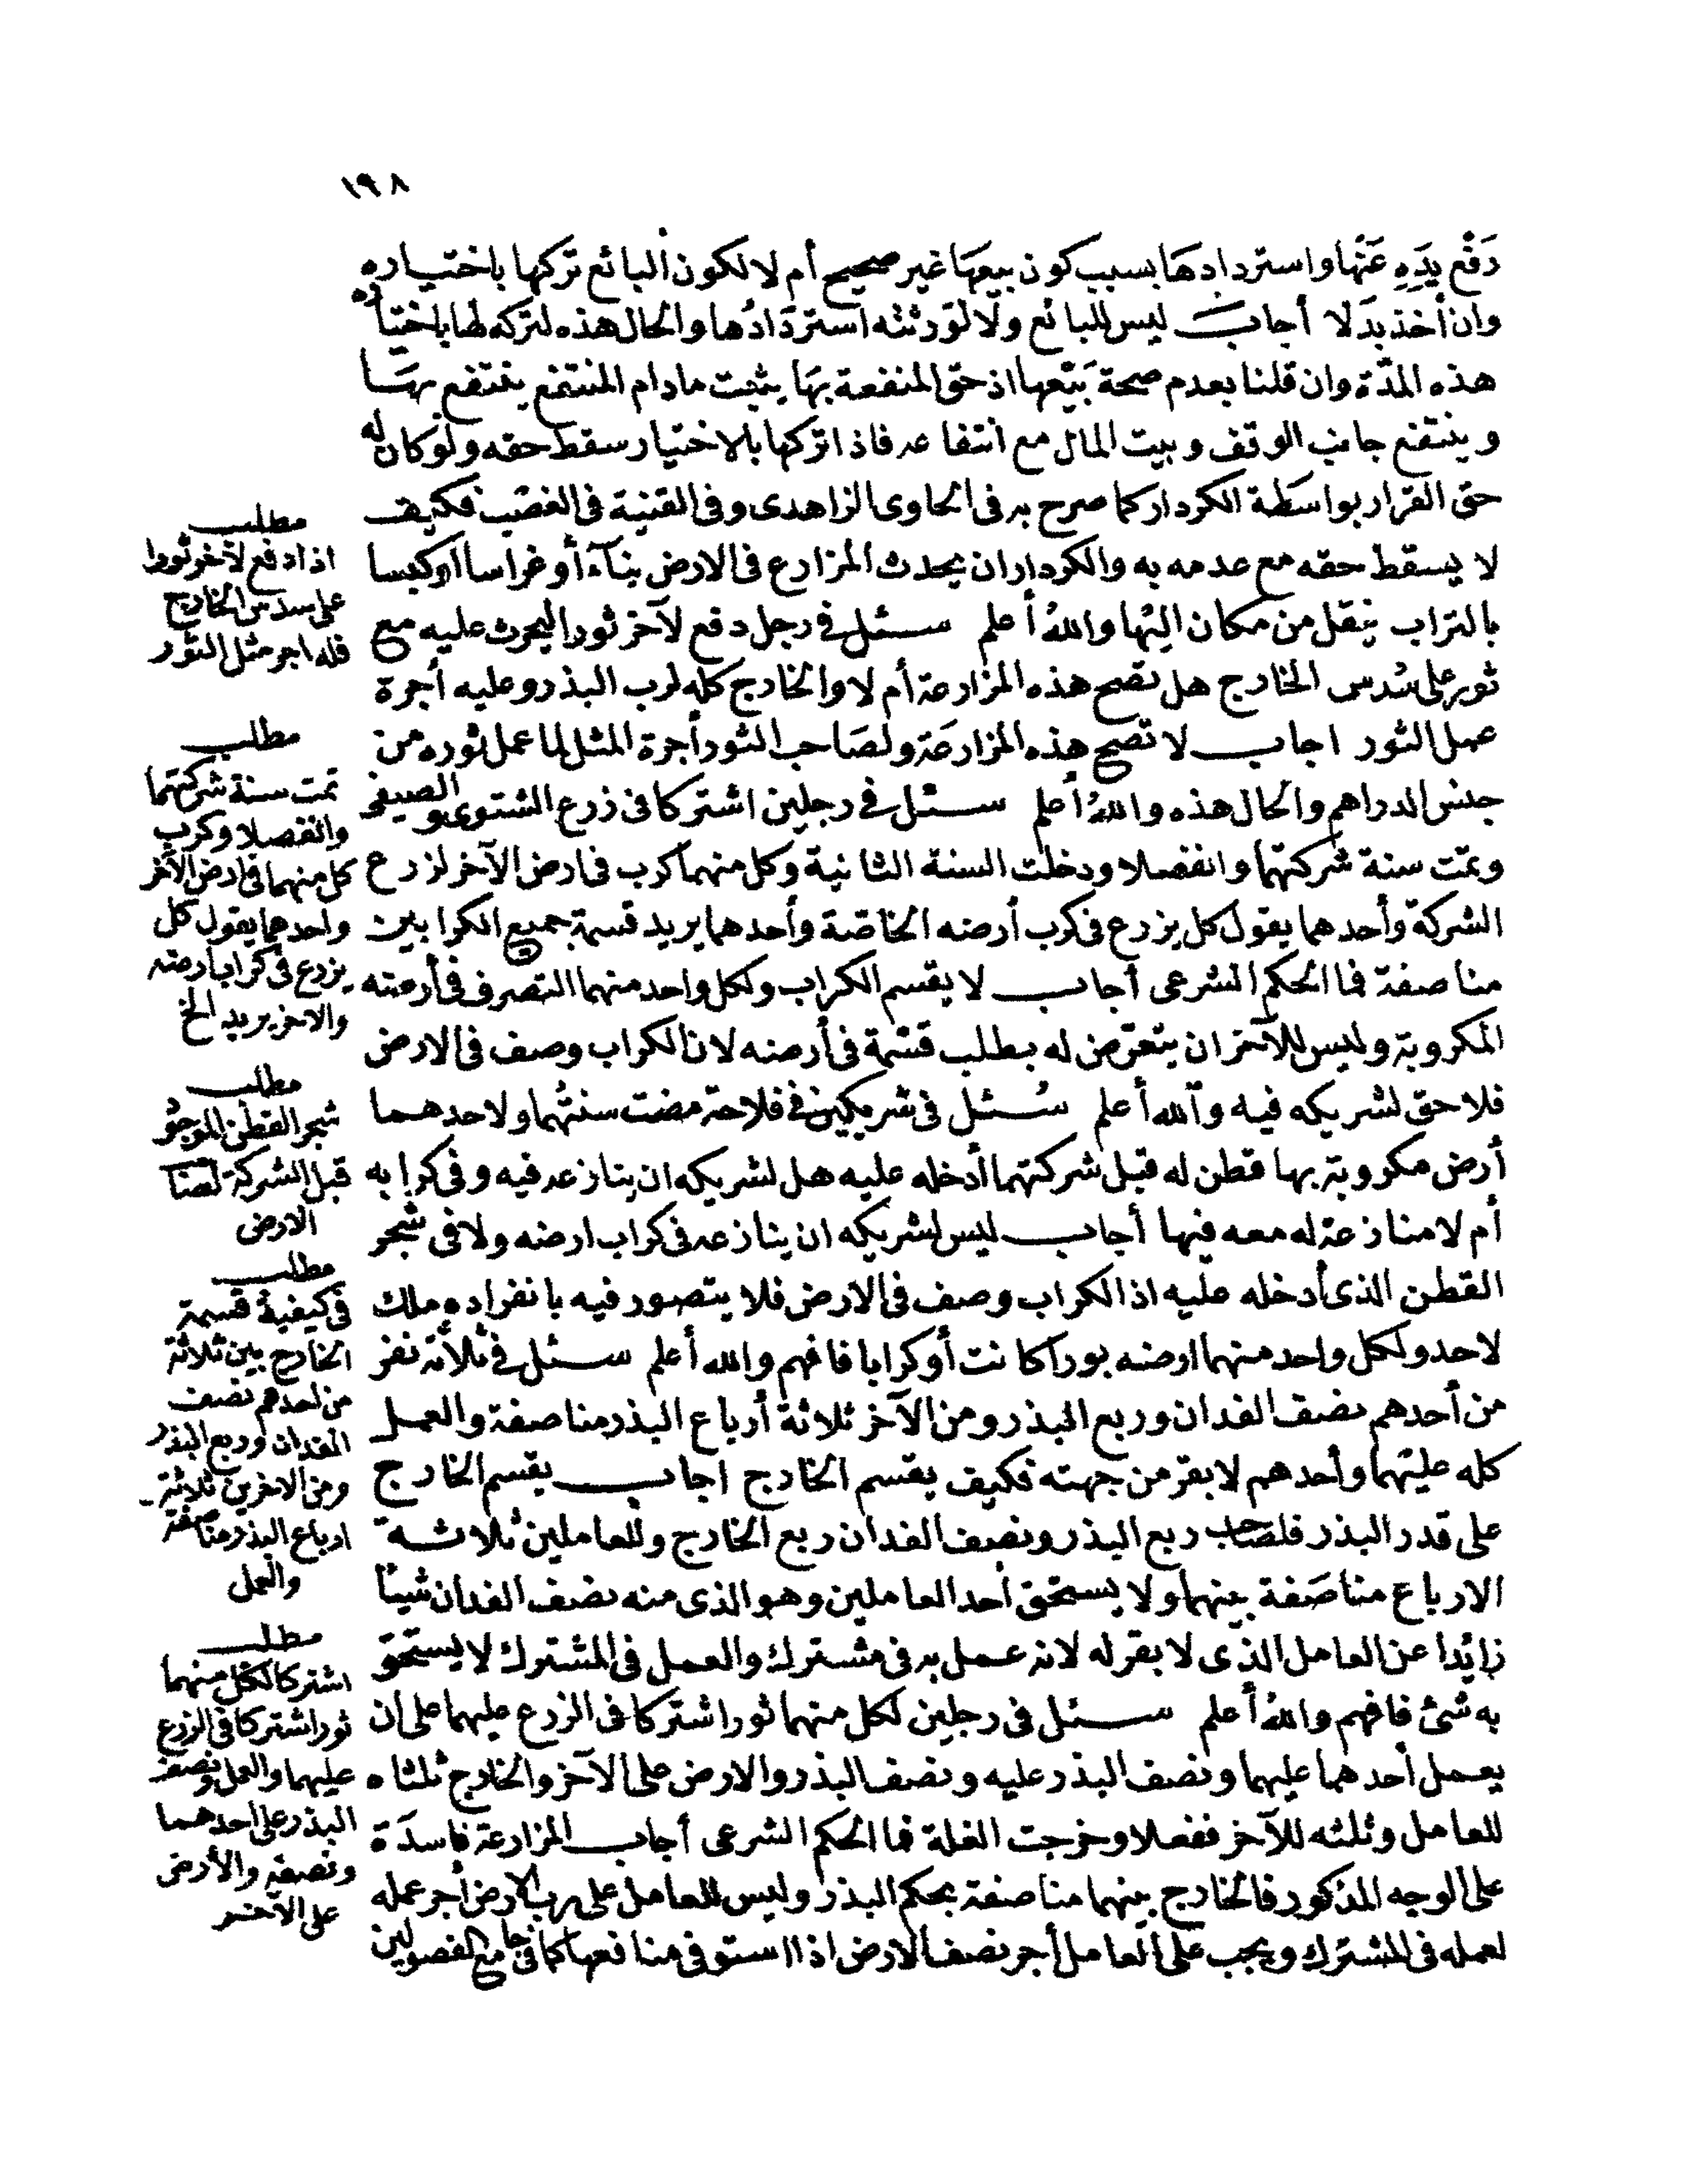 ١٩٨
رَفْع يَدِهِ عَنْها واستردادها بسبب كون بيعها غير صحيح أم لا لكون البائع تركها باختياره
وان أخذ بدَلا أجاب ليس للبائع ولا لورثته استردَادُها والحال هذه لتركه لها باختياره
هذه المدّة وان قلنا بعدم صحة بَيْعها اذ حق المنفعة بهَا يثبت مادام المنتفع ينتفع بهَا
وينتفع جانب الوقف وبيت المال مع انتفاعه فاذا تركها بالاختيار سقط حقه ولو كان له
حق القرار بواسَطة الكردار كما صرح به فى الحاوى الزاهدى وفى القنية فى الغصب فكيف
لا يسقط حقه مع عدمه به والكردار ان يحدث المزارع فى الارض بنآء أو غراسا أو كبسا
بالتراب ينقل من مكان اليْها واللهُ أعلم سئل فى رجل دفع لآخر ثورا ليحرث عليه مع
ثوره على سُدس الخارج هل تصح هذه المزارعة أم لا والخارج كله لرب البذر وعليه أجرة
عمل الثور اجاب لا تصح هذه المزارعَة ولصَاحب الثور أجرة المثل لما عمل ثوره من
جنس الدراهم والحال هذه واللهُ أعلم سئل فى رجلين اشتركا فى زرع الشتوى والصيفى
وتمت سنة شركتهما وانفصلا ودخلت السنة الثانية وكل منهما كرب فى ارض الآخر لزرع
الشركة وأحدهما يقول كل يزرع فى كرب أرضه الخاصّة وأحدهما يريد قسمة جميع الكرابين
مناصفة فما الحكم الشرعى أجاب لا يقسم الكراب ولكل واحد منهما التصرف فى أرضه
المكروبة وليس للآخر ان يتعرّض له بطلب قسْمة فى أرضه لان الكراب وصف فى الارض
فلا حق لشريكه فيه وآلله أعلم سُئل فى شريكين فى فلاحة مضت سنتُهما ولاحدهما
أرض مكروبة بها قطن له قبل شركتهما أدخله عليه هل لشريكه ان ينازعه فيه وفى كرابه
أم لا منازعة له معه فيها أجاب ليس لشريكه ان ينازعه فى كراب ارضه ولا فى شجر
القطن الذى أدخله عليه اذ الكراب وصف فى الارض فلا يتصور فيه بانفراده ملك
لاحد ولكل واحد منهما ارضه بورا كانت أو كرابا فافهم والله أعلم سئل فى ثلاثة نفر
من أحدهم نصف الفدان وربع البذر ومن الآخر ثلاثة أرباع البذر مناصفة والعمل
كله عليهما وأحدهم لا بقر من جهته فكيف يقسم الخارج اجاب يقسم الخارج
على قدر البذر فلصَاحب ربع البذر ونصف الفدان ربع الخارج وللعاملين ثلاثة
الارباع مناصَفة بينهما ولا يستحق أحد العاملين وهو الذى منه نصف الفدان شيئا
زائدا عن العامل الذى لا بقر له لانه عمل به فى مشترك والعمل فى المشترك لا يستحق
به شئ فافهم واللهُ أعلم سئل فى رجلين لكل منهما ثور اشتركا فى الزرع عليهما على ان
يعمل أحدهما عليهما ونصف البذر عليه ونصف البذر والارض على الآخر والخارج ثلثاه
للعامل وثلثه للآخر ففعلا وخرجت الغلة فما الحكم الشرعى أجاب المزارعة فاسدَة
على الوجه المذكور فالخارج بينهما مناصفة بحكم البذر وليس للعامل على رب الارض أجر عمله
لعمله فى المشترك ويجب على العامل أجر نصف الارض اذا استوفى منافعها كما فى جامع الفصولين
مطلب
اذا دفع لآخر ثورا
على سدس الخارج
فله اجر مثل الثور
مطلب
تمت سنة شركتهما
وانفصلا وكرب
كل منهما فى ارض الآخر
واحدهما يقول كل
يزرع فى كراب ارضه
والاخر يريد الخ
مطلب
شجر القطن الموجود
قبل الشركة لصا
الارض
مطلب
فى كيفية قسمة
الخارج بين ثلاثة
من احدهم نصف
الفدان وربع البذر
ومن الاخرين ثلاثة
ارباع البذر مناصفة
والعمل
مطلب
اشتركا لكل منهما
ثور اشتركا فى الزرع
عليهما والعمل ونصف
البذر على احدهما
ونصفه والأرض
على الآخر